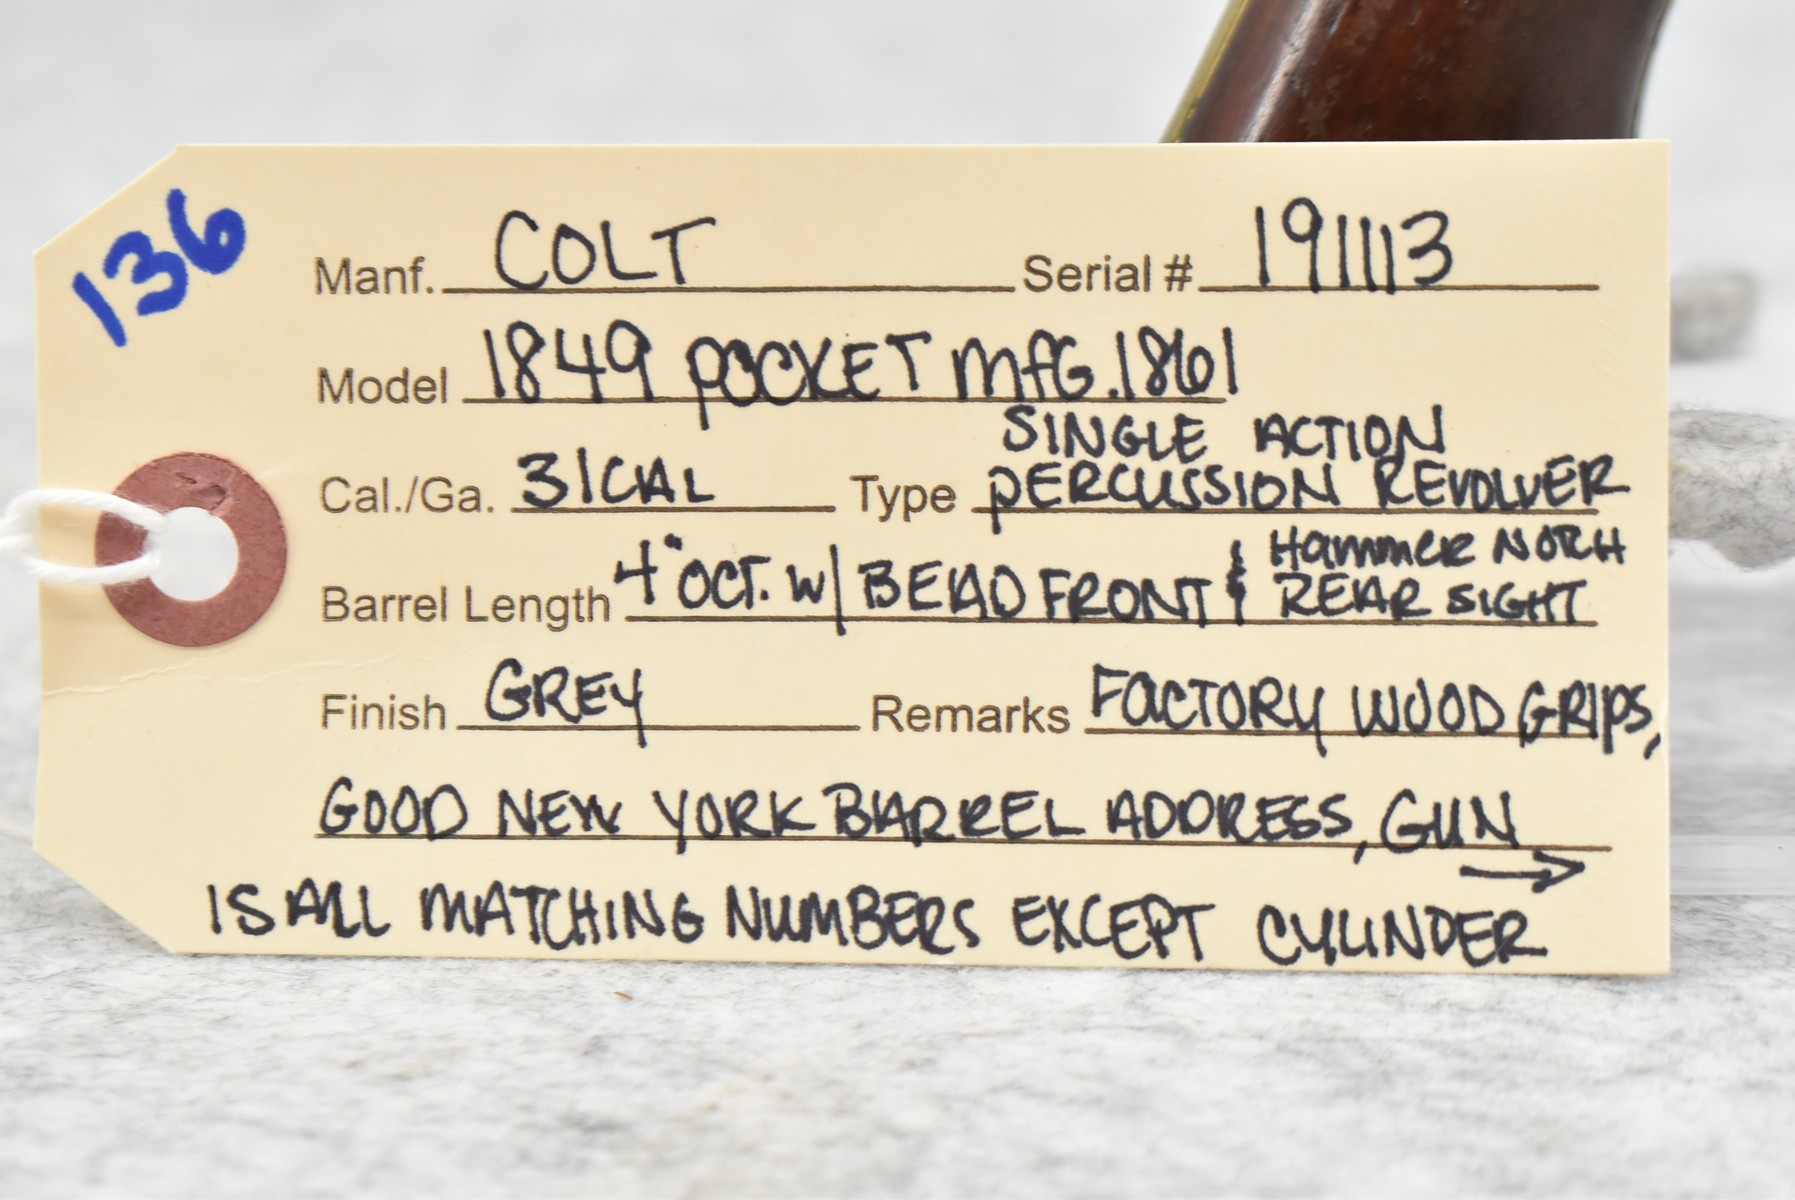 136
Manf. COLT Serial # 191113
Model 1849 POCKET MFG. 1861
SINGLE ACTION
Cal./Ga. 31CAL Type PERCUSSION REVOLVER
HAMMER NOTCH
Barrel Length 4" OCT. W/ BEAD FRONT & REAR SIGHT
Finish GREY Remarks FACTORY WOOD GRIPS,
GOOD NEW YORK BARREL ADDRESS, GUN →
IS ALL MATCHING NUMBERS EXCEPT CYLINDER